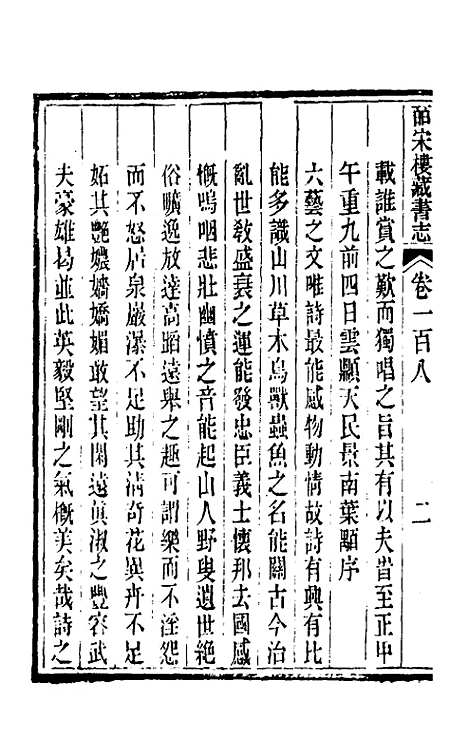 皕宋樓藏書志 卷一百八 二
載誰賞之歎而獨唱之旨其有以夫峕至正甲
午重九前四日雲顥天民景南葉顒序
六藝之文唯詩最能感物動情故詩有興有比
能多識山川草木鳥獸蟲魚之名能關古今治
亂世敎盛衰之運能發忠臣義士懷邦去國感
慨嗚咽悲壯幽憤之音能起山人野叟遺世絶
俗曠逸放達高蹈遠舉之趣可謂樂而不淫怨
而不怒居泉巖瀑不足助其淸奇花異卉不足
妬其艷嬥嬌媚敢望其閑遠眞淑之豐容武
夫豪雄曷並此英毅堅剛之氣槪美矣哉詩之